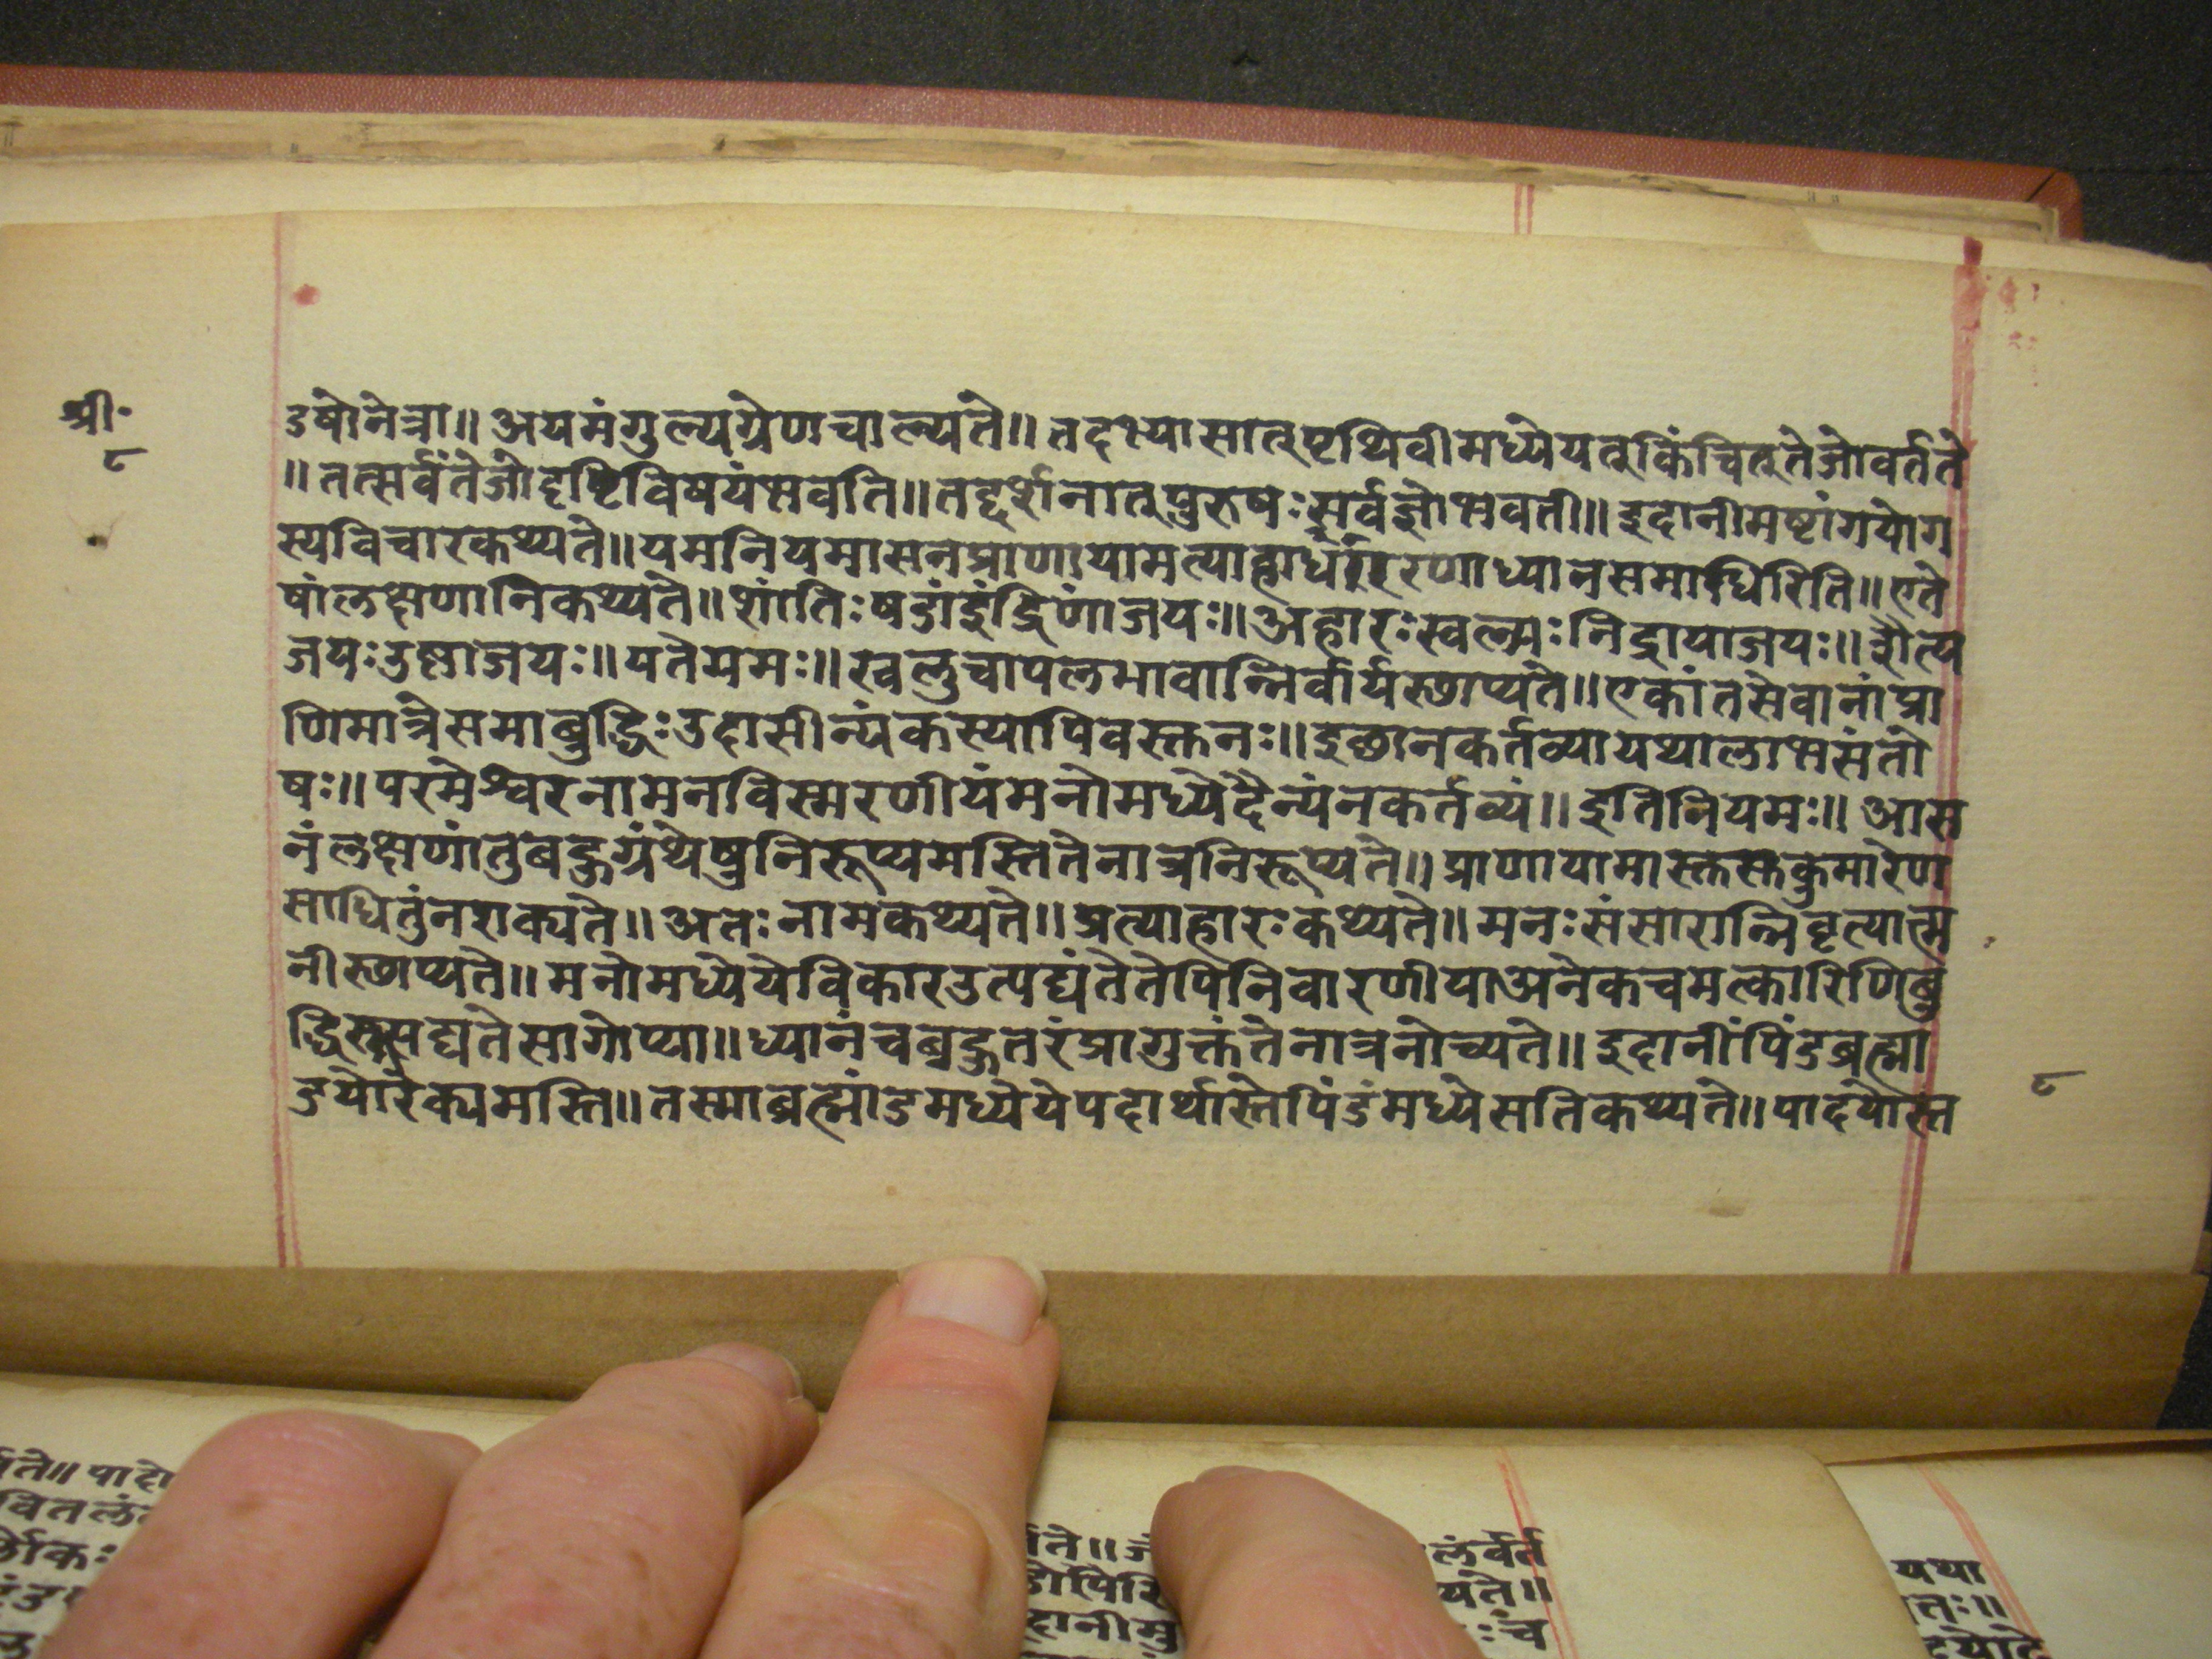 श्री॰
८
डषोनेत्रा॥ अयमंगुल्यग्रेणचाल्यते॥ तदभ्यासात्पृथिवीमध्येयत्किंचित्तेजोवर्तते
॥ तत्सर्वंतेजोदृष्टिविषयंभवति॥ तद्दर्शनात्पुरुषःसर्वज्ञोभवती॥ इदानीमष्टांगयोग
स्यविचारकथ्यते॥ यमनियमासनप्राणायामत्याहा रणाध्यानसमाधिरिति॥ एते
षांलक्षणानिकथ्यते॥ शांतिःषडांइंद्रिणांजयः॥ अहारःस्वल्पःनिद्रायाजयः॥ शैत्य
जयःउष्णाजयः॥ यतेयमः॥ खलुचापलभावान्निर्वार्यस्थाप्यते॥ एकांतसेवानांप्रा
णिमात्रेसमाबुद्धिःउदासीन्यंकस्यापिवस्तनः॥ इछानकर्तव्यायथालाभसंतो
षः॥ परमेश्वरनामनविस्मरणीयंमनोमध्येदैन्यंनकर्तव्यं॥ इतिनियमः॥ आस
नंलक्षणांतुबहुग्रंथेषुनिरूप्यमस्तितेनात्रनिरूप्यते॥ प्राणायामास्तस्तकुमारेण
साधितुंनशक्यते॥ अतःनामकथ्यते॥ प्रत्याहारःकथ्यते॥ मनःसंसारान्निवृत्यात्म
नीस्थाप्यते॥ मनोमध्येयेविकारउत्पद्यंतेतेपिनिवारणीयाअनेकचमत्कारिणिबु
द्धिरुत्सद्यतेसागोप्या॥ ध्यानंचबहुतरंप्रागुक्तंतेनात्रनोच्यते॥ इदानींपिंडब्रह्मा
डयोरैक्यमस्ति॥ तस्माब्रह्मांडमध्येयेपदार्थास्तेपिंडंमध्येसतिकथ्यते॥ पादयोस्त
८